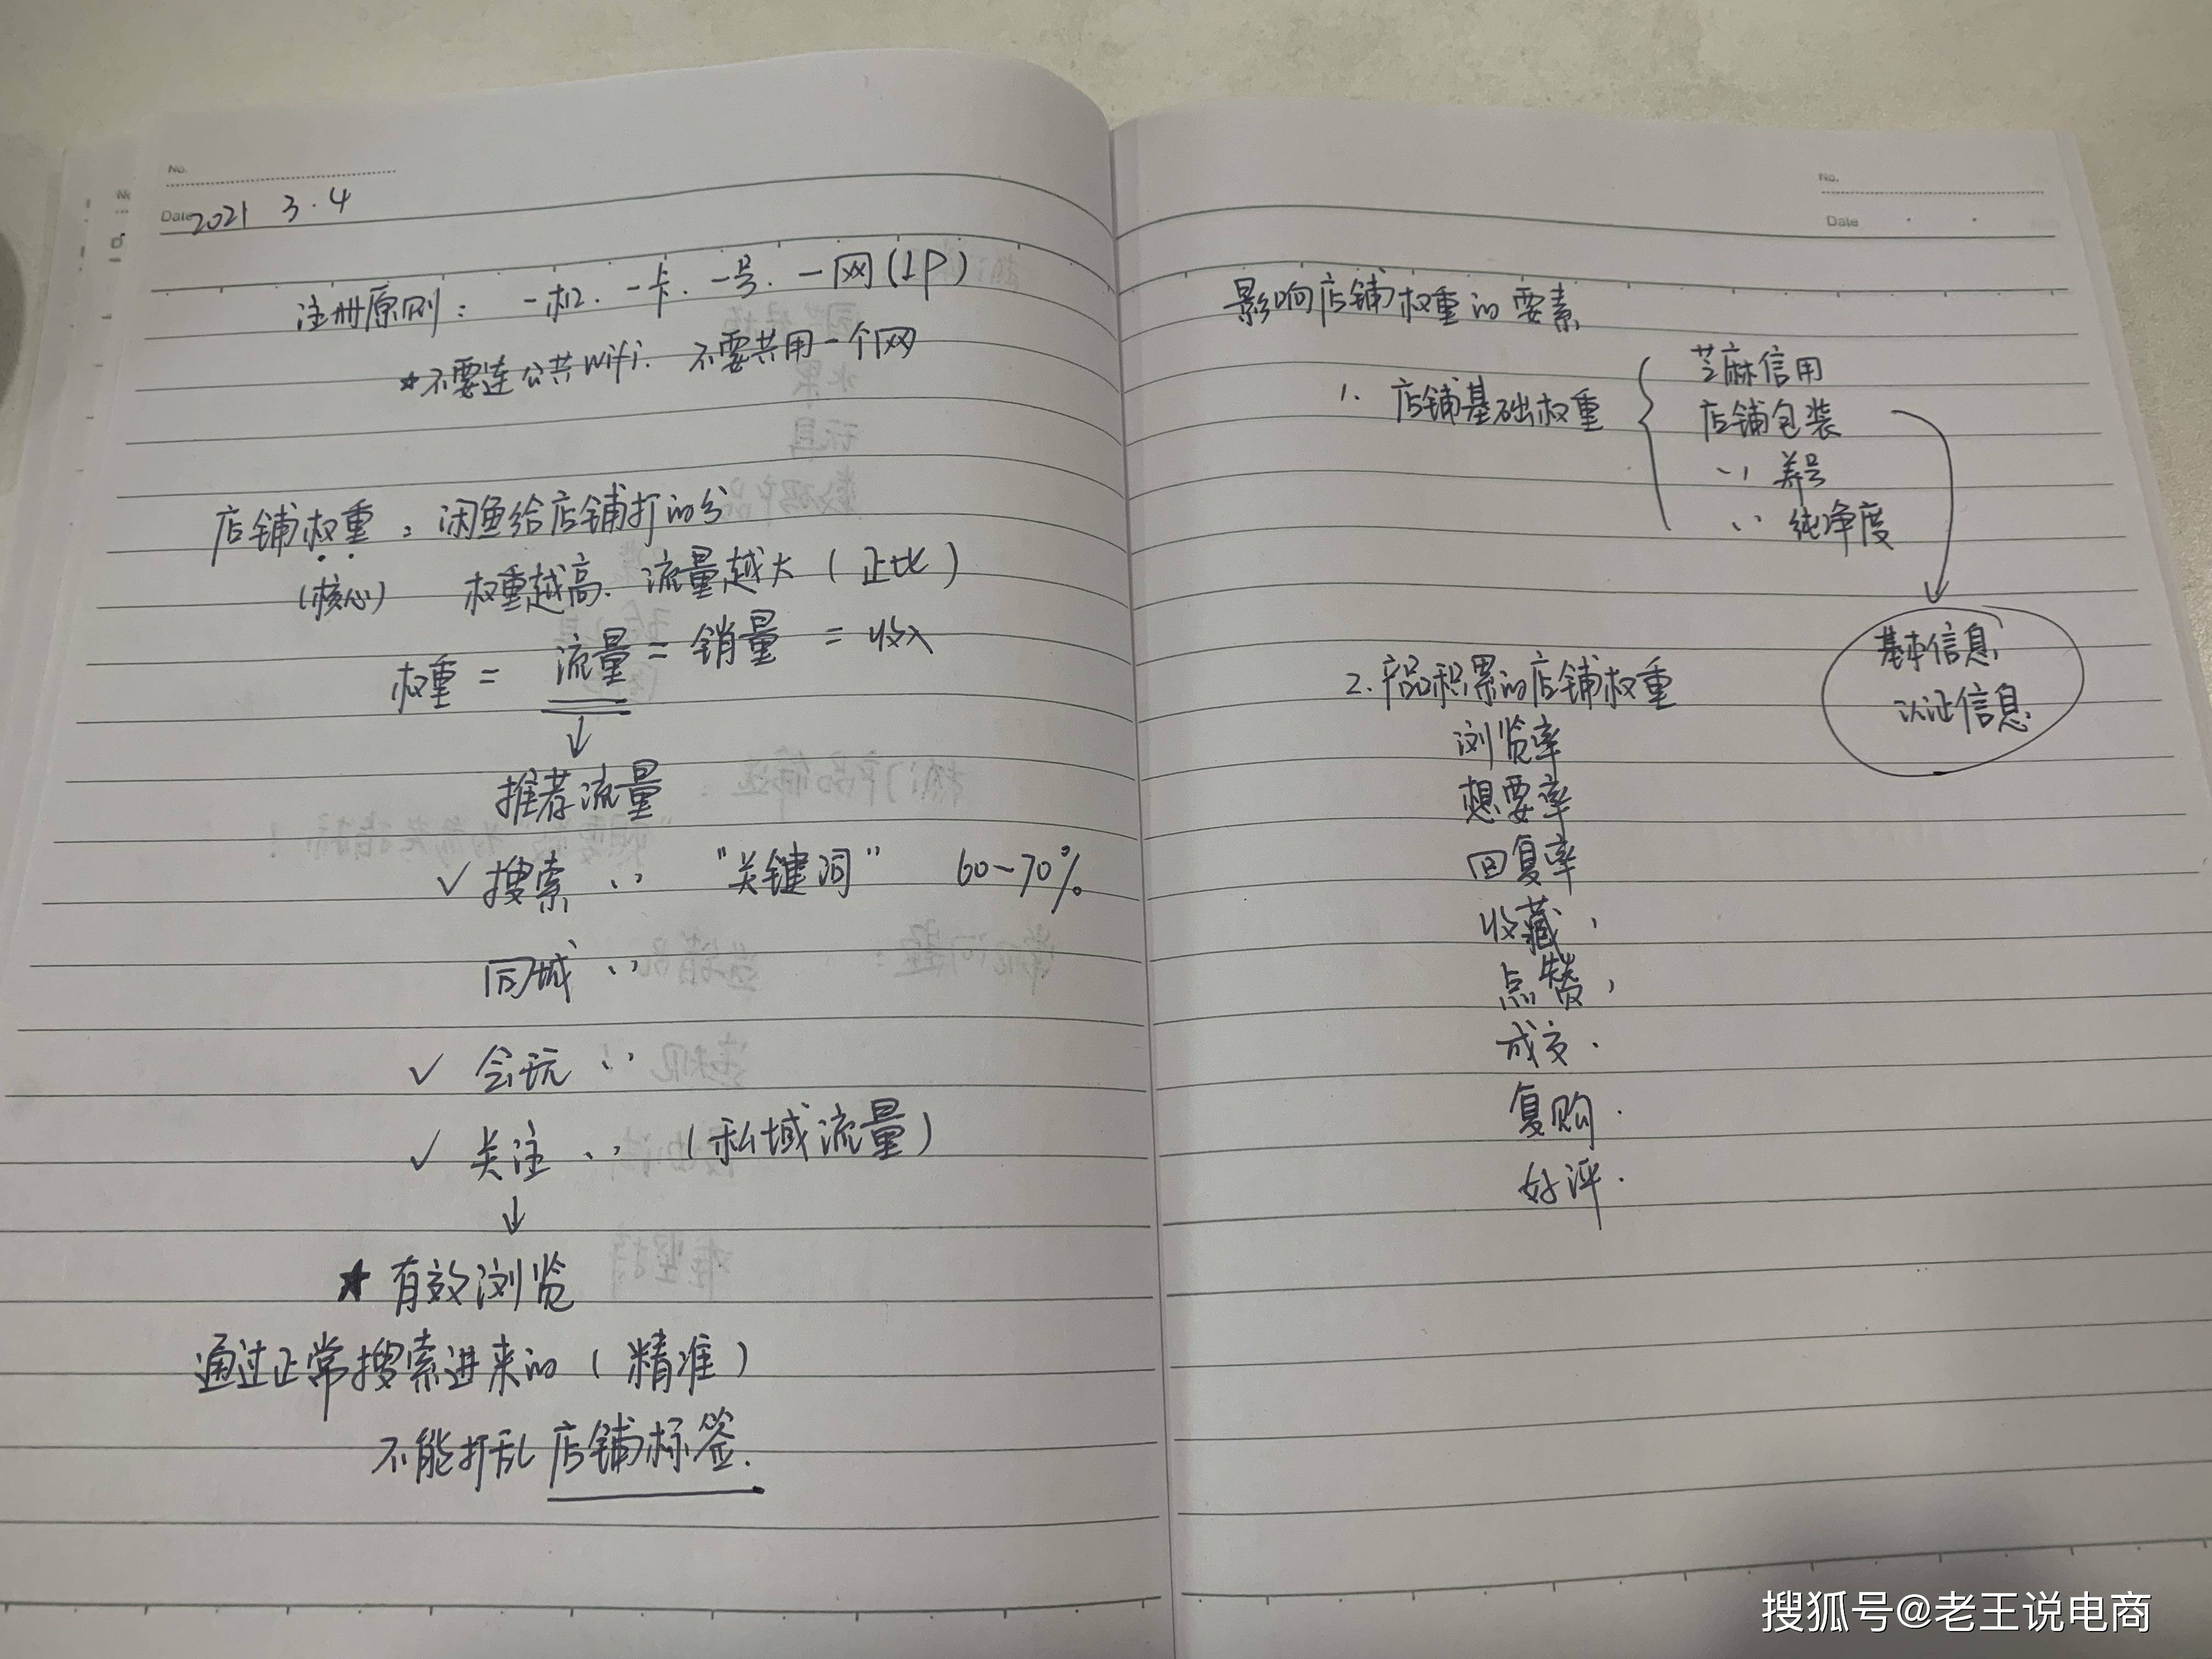 No.
Date 2021 3.4
注册原则： 一机、一卡、一号、一网(IP)
★不要连公共wifi. 不要共用一个网
店铺权重：闲鱼给店铺打的分
(核心) 权重越高、流量越大(正比)
权重 = 流量 = 销量 = 收入
↓
推荐流量
✓ 搜索 〃 "关键词" 60~70%
同城 〃
✓ 会玩 〃
✓ 关注 〃 (私域流量)
↓
★ 有效浏览
通过正常搜索进来的(精准)
不能打乱店铺标签.
No.
Date
影响店铺权重的要素
1. 店铺基础权重
芝麻信用
店铺包装
〃 养号
〃 纯净度
基本信息
认证信息
2. 产品积累的店铺权重
浏览率
想要率
回复率
收藏、
点赞、
成交.
复购.
好评.
搜狐号@老王说电商